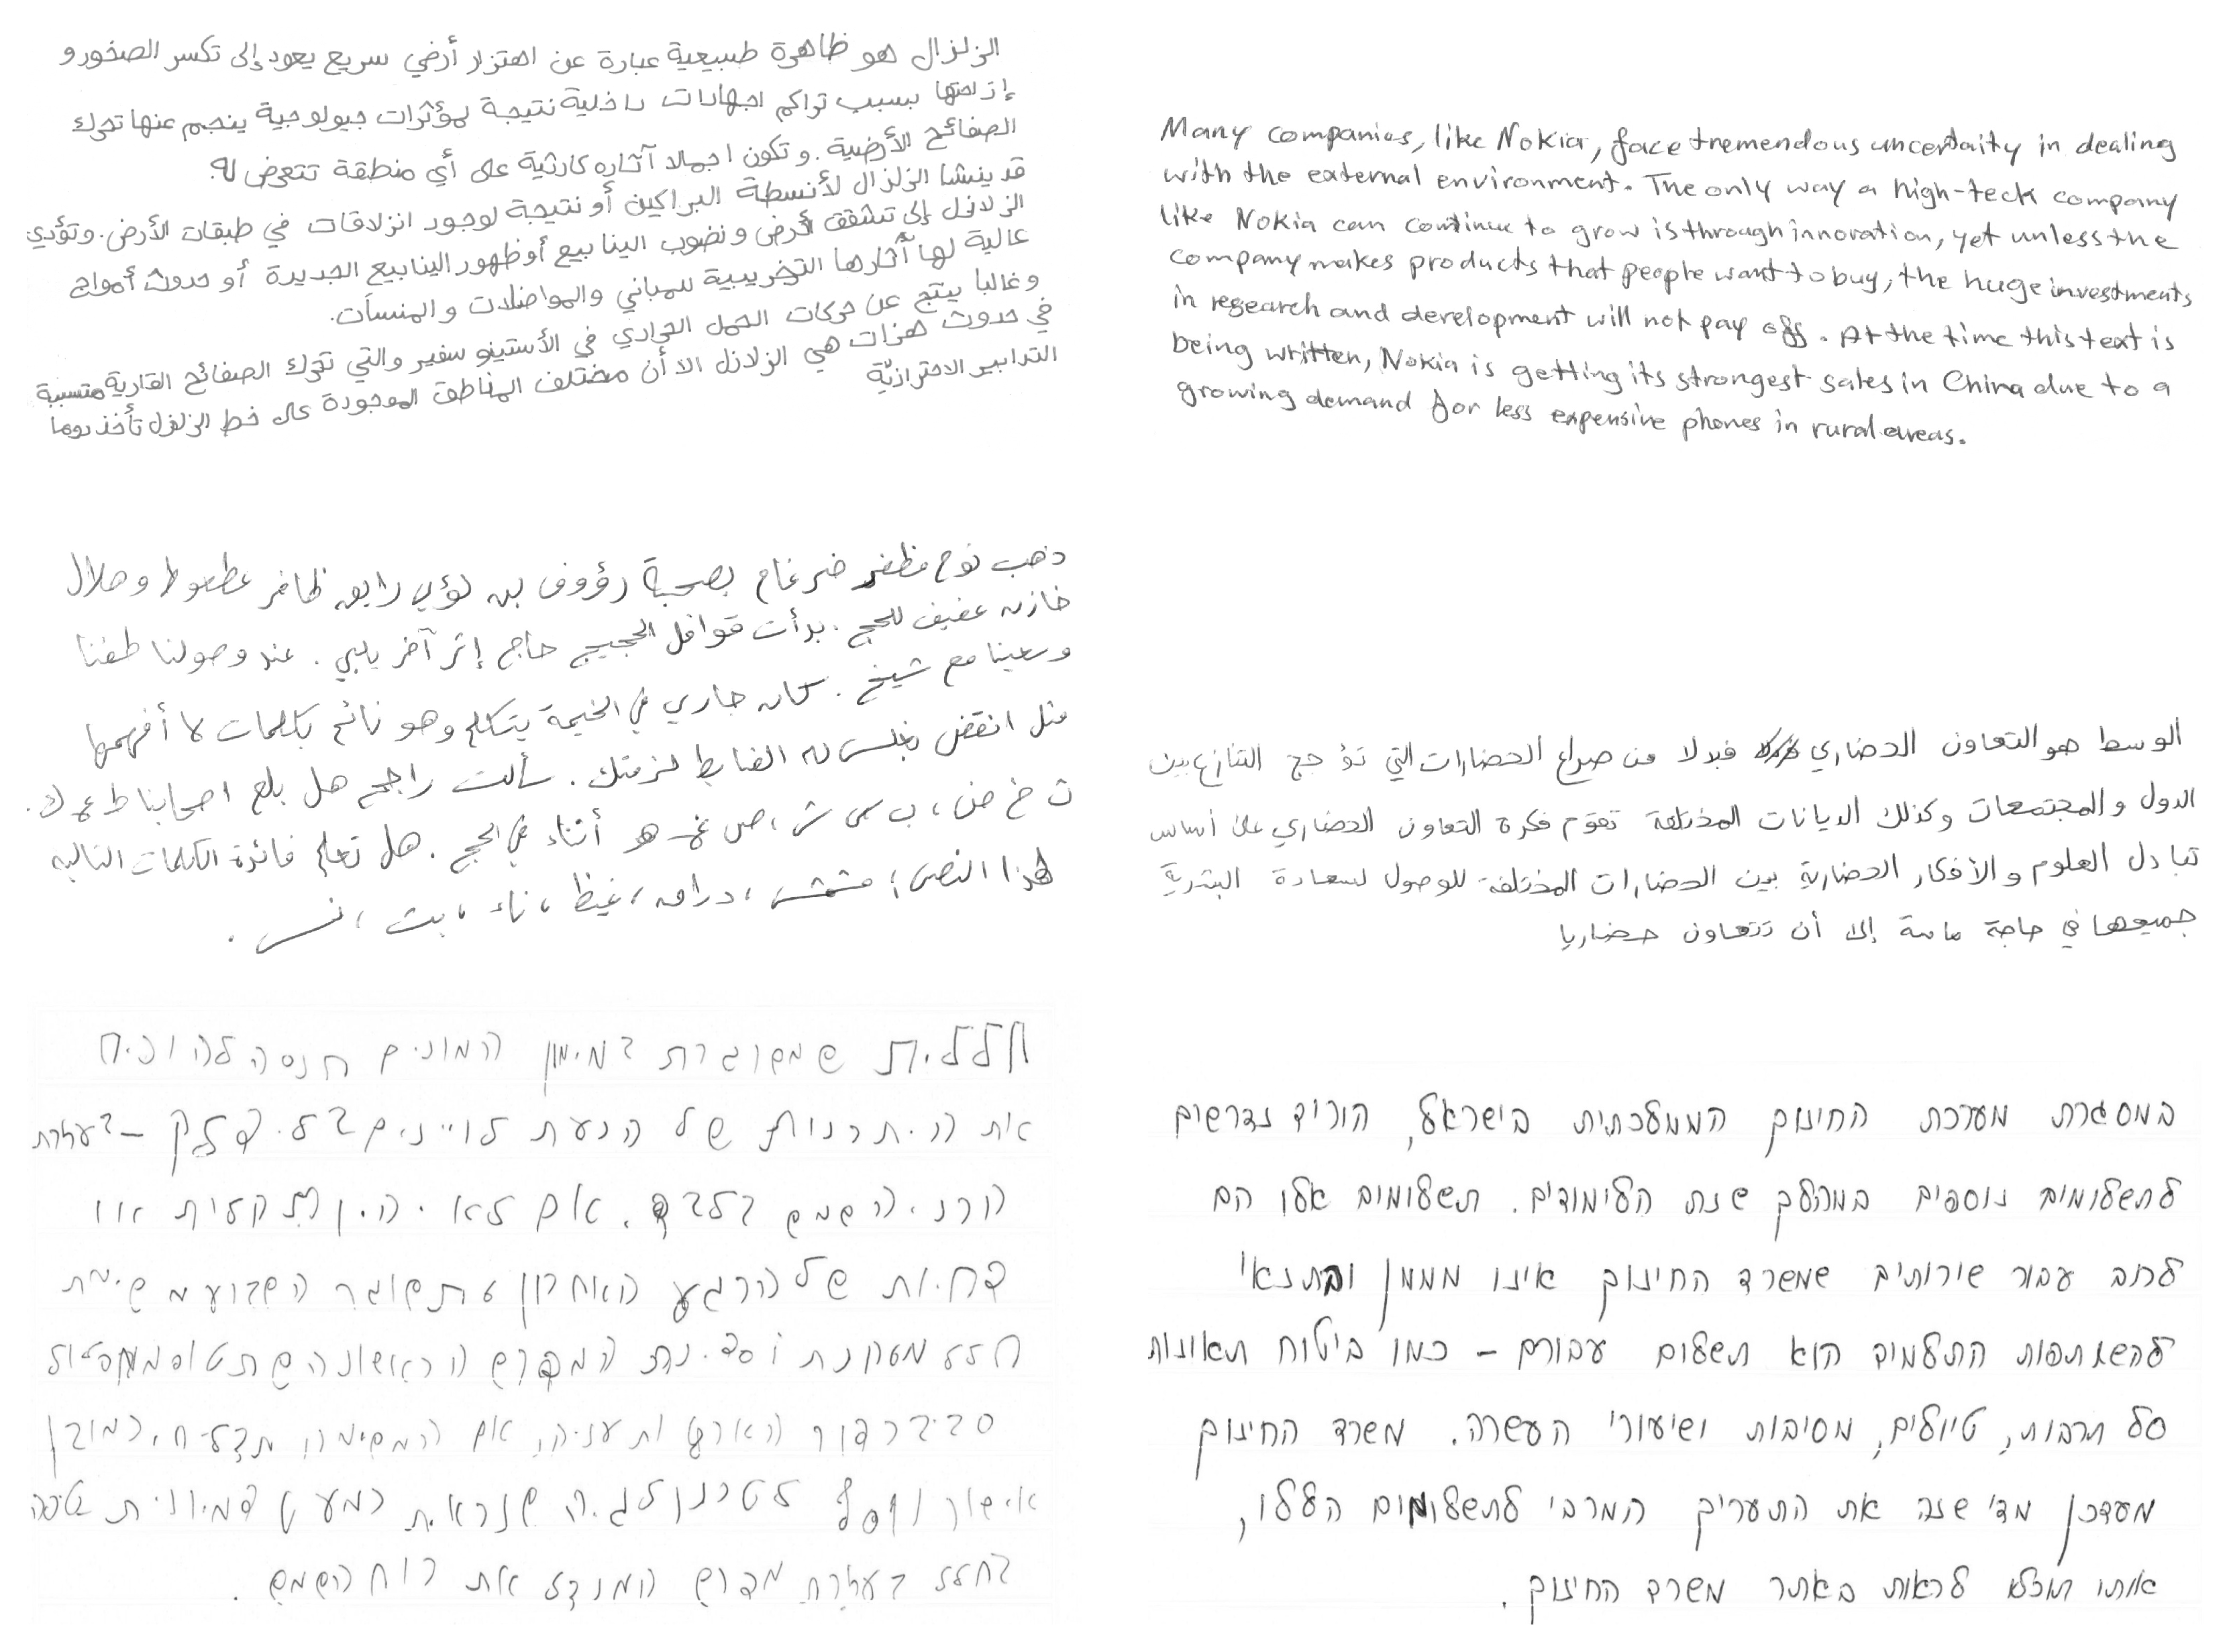 الزلزال هو ظاهرة طبيعية عبارة عن اهتزاز أرضي سريع يعود إلى تكسر الصخور و
إزاحتها بسبب تراكم اجهادات داخلية نتيجة لمؤثرات جيولوجية ينجم عنها تحرك
الصفائح الأرضية. و تكون اجمالا آثاره كارثية على أي منطقة تتعرض له.
قد ينشا الزلزال لأنسطة البراكين أو نتيجة لوجود انزلاقات في طبقات الأرض. وتؤدي
الزلازل إلى تشقق أرض و نضوب الينابيع أو ظهور الينابيع الجديدة أو حدوث أمواج
عالية لها آثارها التخريبية للمباني والمواصلات و المنسآت.
وغالبا ينتج عن حركات الحمل الحراري في الأستينو سفير والتي تحرك الصفائح القارية متسببة
في حدوث هزات هي الزلازل الا أن مختلف المناطق الموجودة على خط الزلازل تأخذ دوما
التدابير الاحترازيّة
Many companies, like Nokia, face tremendous uncertaity in dealing
with the external environment. The only way a high-teck company
like Nokia can continue to grow is through innovation, yet unless the
company makes products that people want to buy, the huge investments
in research and development will not pay off. At the time this text is
being written, Nokia is getting its strongest sales in China due to a
growing demand for less expensive phones in rural areas.
ذهب نوح مظفر ضرغام بصحبة رؤوف بن لؤي رابع ظافر عطعوط و هلال
خازن عفيف للحج. بدأت قوافل الحجيج حاج إثر آخر يلبي. عند وصولنا طفنا
وسعينا مع شيخ. كان جاري في الخيمة يتكلم وهو نائم بكلمات لا أفهمها
مثل انقض الضابط لزمتك. سألت راجح هل بلع اصحابنا
ث خ ض، ب س ش، ص غ هو أثناء في الحج. هل تعلم فائدة الكلمات التالية
لهذا النص؛ مشمش، دراق، غيظ، ناء، بت، نس.
الوسط هو التعاون الحضاري فبدلا من صراع الحضارات التي تؤجج التنازع بين
الدول والمجتمعات وكذلك الديانات المختلفة تقوم فكرة التعاون الحضاري على أساس
تبادل العلوم والأفكار الحضارية بين الحضارات المختلفة للوصول لسعادة البشرية
جميعها في حاجة ماسة إلى أن تتعاون حضاريا
חללית שמשוגרת במימון המונים תנסה להוכיח
את היתרונות של הנעת לוויינים בלי דלק – בעזרת
קרני השמש בלבד. אם לא יהיו תקלות או
דחיות של הרגע האחרון תשוגר השבוע משימת
חלל מסקרנת וספינת המפרש הראשונה שתטוס
סביב כדור הארץ ותעניק, אם המשימה תצליח, כמובן
אישור נוסף לטכנולוגיה שנראית כמעט דמיונית טיסה
בחלל בעזרת מפרש המנצל את רוח השמש.
במסגרת מערכת החינוך הממלכתית בישראל, הורים נדרשים
לתשלומים נוספים במהלך שנת הלימודים. תשלומים אלו הם
לרוב עבור שירותים שמשרד החינוך אינו מממן ובתנאי
להשתתפות התלמיד הוא תשלום עבורם – כמו ביטוח תאונות
סל תרבות, טיולים, מסיבות ושיעורי העשרה. משרד החינוך
מעדכן מדי שנה את התעריף המרבי לתשלומים הללו,
אותו תוכלו לראות באתר משרד החינוך.